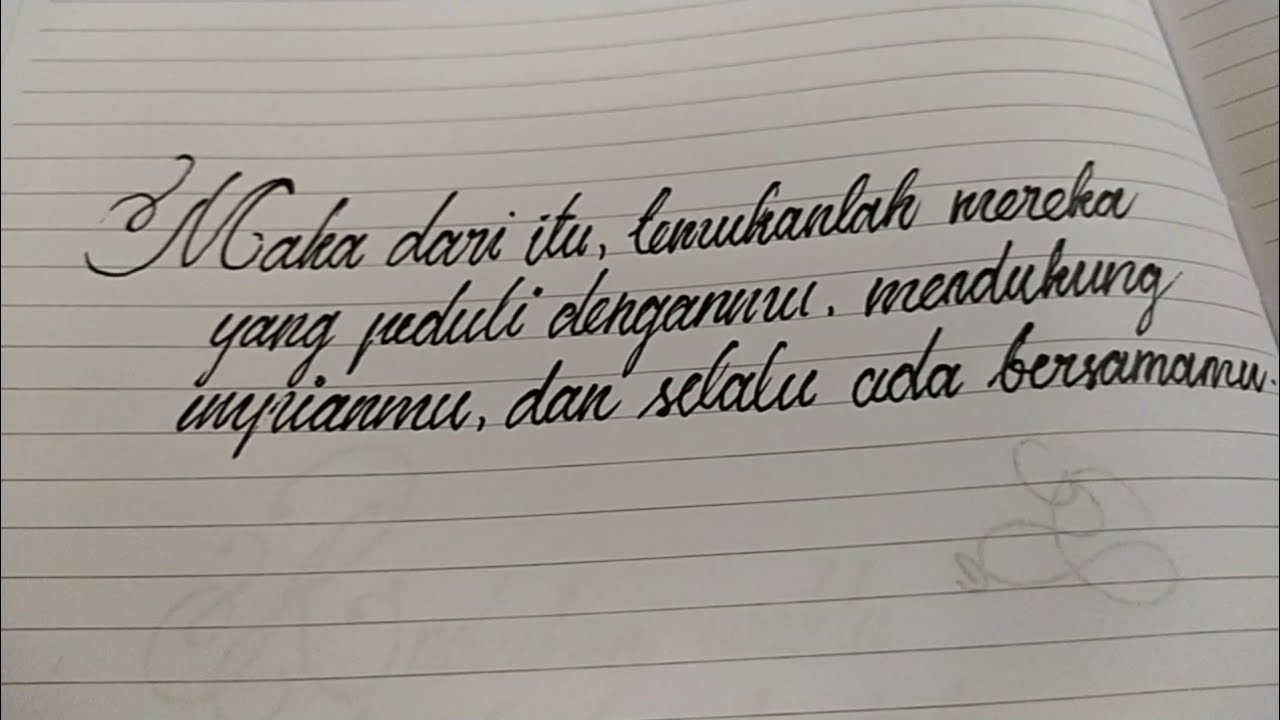 Maka dari itu, temukanlah mereka
yang peduli denganmu. mendukung
impianmu, dan selalu ada bersamamu.